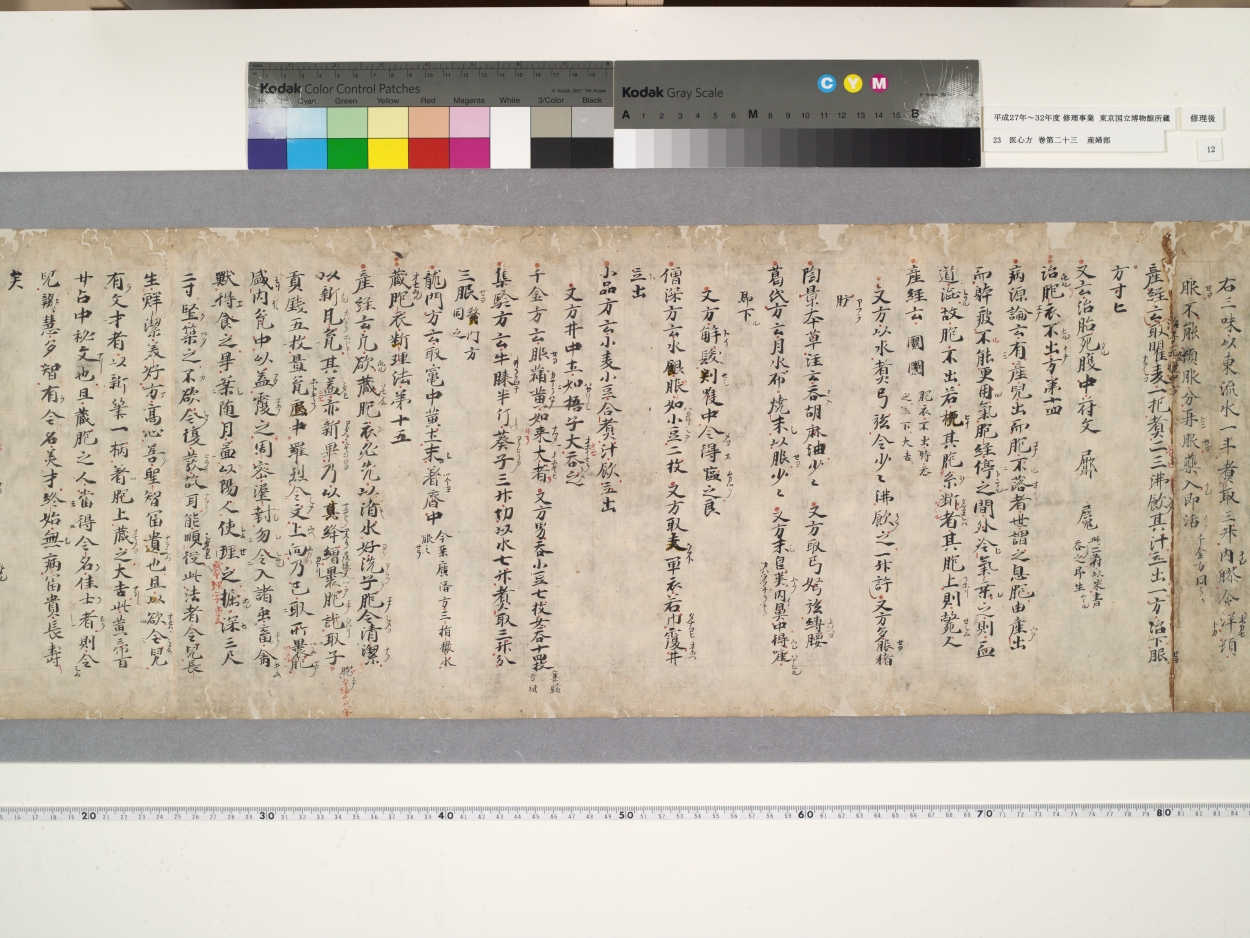 Kodak Color Control Patches
Cyan Green Yellow Red Magenta White 3/Color Black
Kodak Gray Scale
C Y M
A 1 2 3 4 5 6 M 8 9 10 11 12 13 14 15 B
平成27年～32年度 修理事業 東京国立博物館所蔵
修理後
23 医心方 巻第二十三 産婦部
12
右三味以東流水一斗煮取三升内膝令
服不能頓服分再服薬入即活
産経云取瞿麦一把煮二三沸飲其汁立出一方治下服
方寸匕
又云治胎死腹中符文
治胞衣不出方第十四
病源論云有産児出而胞不落者世謂之息胞由産出
而疲不能更用気胞経停之間外冷気乗之則血
道澁故胞不出若挽其胞系断者其胞上則斃人
産経云 胞衣不出時呑之立下大吉
又方以水煮弓弦令少々沸飲一二升許 又方多服猪
肪
陶景本草注云呑胡麻油少々 又方取弓弩弦縛腰
葛氏方云月水布焼末以服少々 又方末皂莢内鼻中得嚏
即下
又方解髪刺喉中令得嘔之良
僧深方云水銀服如小豆二枚 又方取夫単衣若巾覆井
立出
小品方云小麦小豆合煮汁飲立出
又方井中土如梧子大呑之
千金方云服蒲黄如棗大者 又方男呑小豆七枚女呑十四枚
集験方云牛膝半斤葵子三升切以水七升煮取三升分
三服
龍門方云取竃中黄土末著齊中
蔵胞衣断理法第十五
産経云凡欲蔵胞衣必先以清水好洗子胞令清潔
以新瓦瓮其盖亦新畢乃以真絳繒裹胞訖取子
貢銭五枚置瓮底中羅烈令文上向乃已取所裹胞
盛内瓮中以盖覆之周密埿封勿令入諸虫畜禽
獣得食之畢案随月図以陽人使埋之掘深三尺
二寸堅築之不欲令復発故耳能順従此法者令児長
生鮮潔美好方高心善聖智富貴也且以欲令児
有文才者以新筆一柄著胞上蔵之大吉此黄帝百
廿占中秘文也且蔵胞之人當得令名佳士者則令
児聡慧多智有令名美才終始無病富貴長寿
矣
20 30 40 50 60 70 80